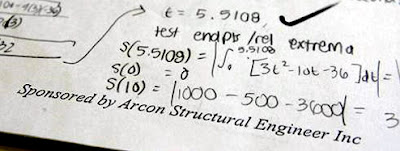 t = 5.5108,
test endpts /rel extrema
S(5.5108) = |∫₀^5.5108 [3t²-10t-36]dt| =
S(0) = 0
S(10) = |1000 - 500 - 3600| = 3
Sponsored by Arcon Structural Engineer Inc